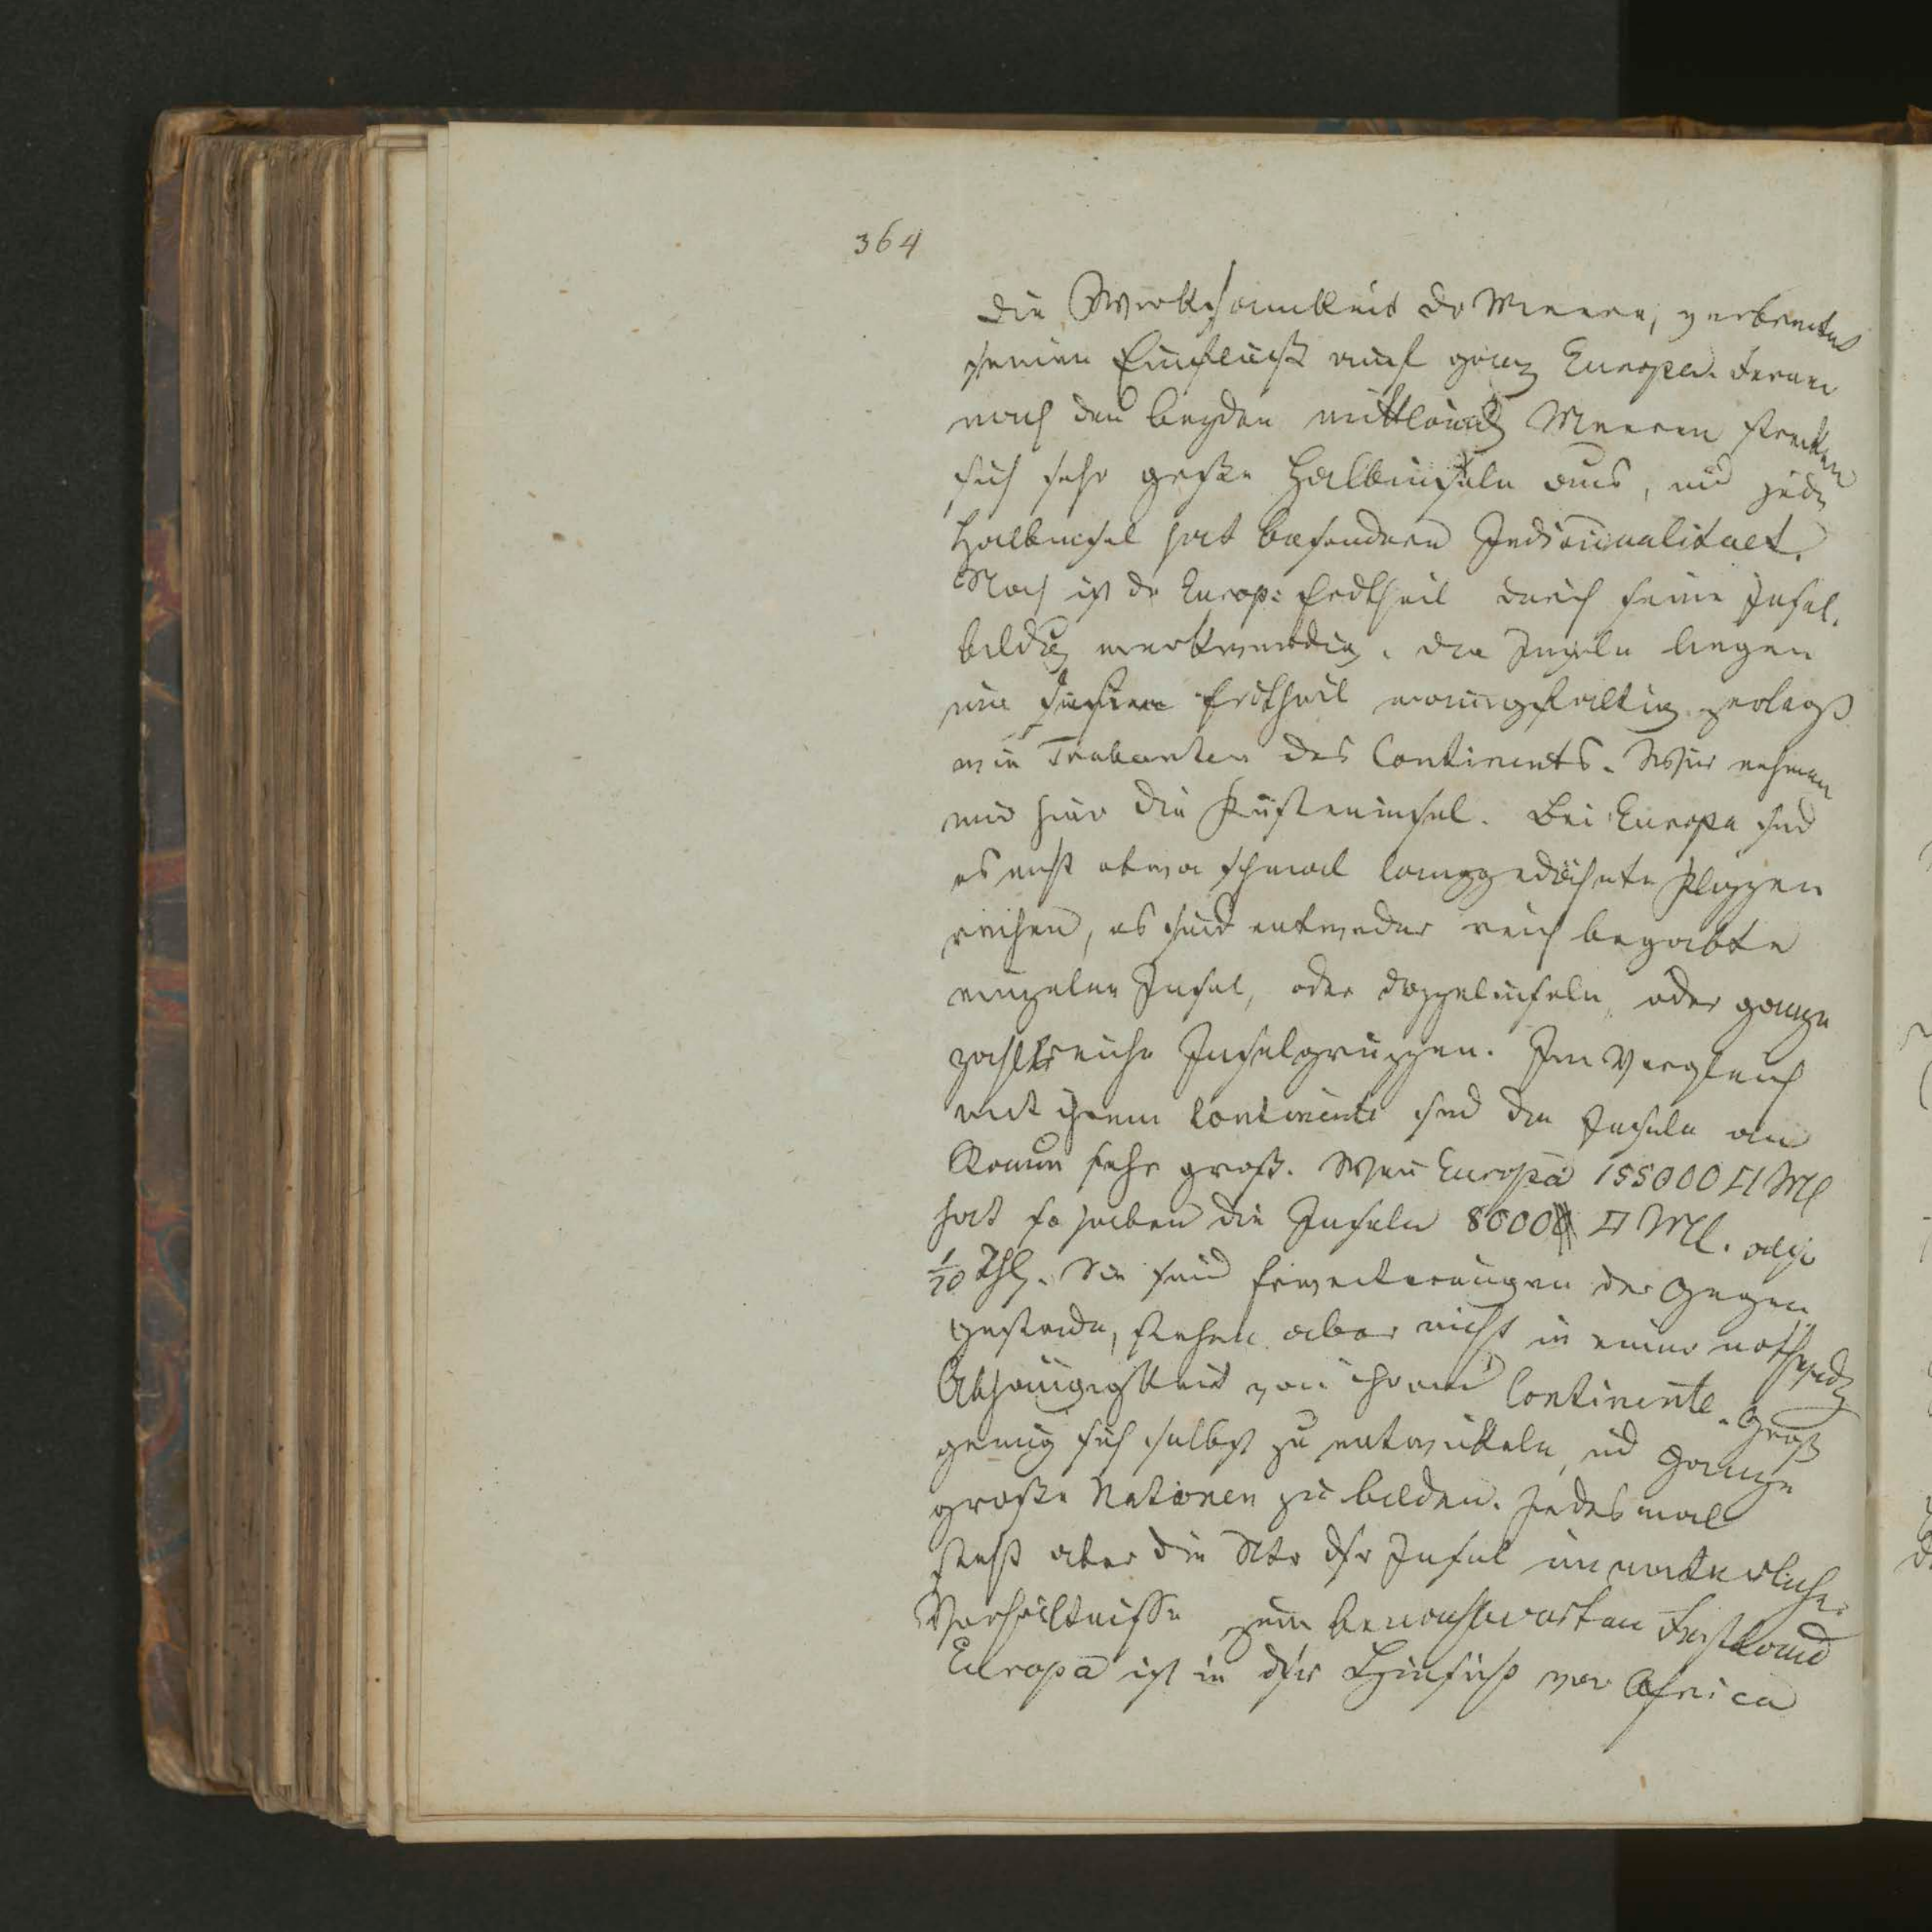 364
die Wirksamkeit der Meere, verbreitet
seinen Einfluß auf ganz Europa. Ferner
nach den beyden mittländ Meeren strecken
sich sehr große Halbinseln aus, und jede
Halbinsel hat besondere Individualitaet.
Noch ist der Europ: Erdtheil durch seine Insel,
bildung merkwürdig. Die Inseln liegen
um diesen Erdtheil mannigfaltig
wie Trabanten des Continents. Wir nehmen
nur hier die Küsteninsel. Bei Europa sind
es nicht etwa schmal langgedähnte Klippen
reihen, es sind entweder reich begabte
einzelne Insel, oder Doppelinseln, oder ganze
zahlreiche Inselgruppen. Im Vergleich
mit ihrem Continente sind die Inseln an
Raum sehr groß. Wenn Europa 155000 □ Ml
hat so haben die Inseln 8000 □ Ml. also
1/20 Thl. Sie sind Erweiterungen der Gegen
gestade, stehen aber nicht in einer nothwend
Abhängigkeit von ihrem Continente. Groß
genug sich selbst zu entwickeln, und ganze
große Nationen zu bilden. Jedes mal
steht aber die Ntr dsr Insel im natürlichen
Verhältnisse zum benachbarten Festland
Europa ist in dsr Hinsicht vor Africa